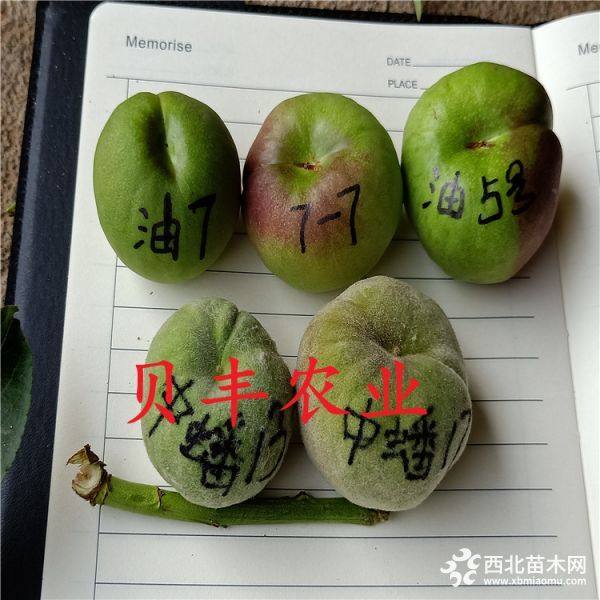 Memorise
DATE
PLACE
Me
油7
7-7
油5号
贝丰农业
中蟠13
中蟠1
西北苗木网
www.xbmiaomu.com